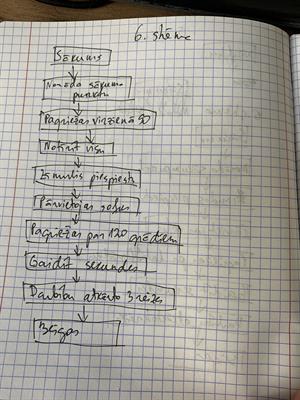 6. shēma
Sākums
Novieto sākuma
punktu
Pagriežas virzienā 90
Notīrīt visu
Zīmulis piespiests
Pārvietojas soļus
Pagriežas par 120 grādiem
Gaidīt sekundes
Darbības atkārto 3 reizes
Beigas